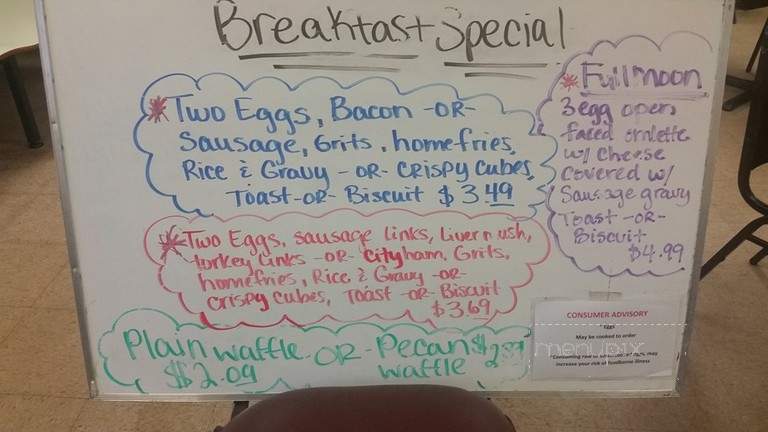 Breakfast Special
*Two Eggs, Bacon -OR-
Sausage, Grits, homefries,
Rice & Gravy -OR- CRISPY Cubes,
Toast -OR- Biscuit $3.49
*Two Eggs, sausage links, Liver n ush,
turkey links -OR- City ham, Grits,
homefries, Rice & Gravy -OR-
Crispy Cubes, Toast -OR- Biscuit
$3.69
Plain waffle -OR- Pecan
waffle
$2.09
*Full moon
3 egg open
faced omlette
w/ cheese
covered w/
Sausage gravy
Toast -OR-
Biscuit
$4.99
CONSUMER ADVISORY
Eggs
May be cooked to order
"Consuming raw or may
increase your risk of foodborne illness
menupix